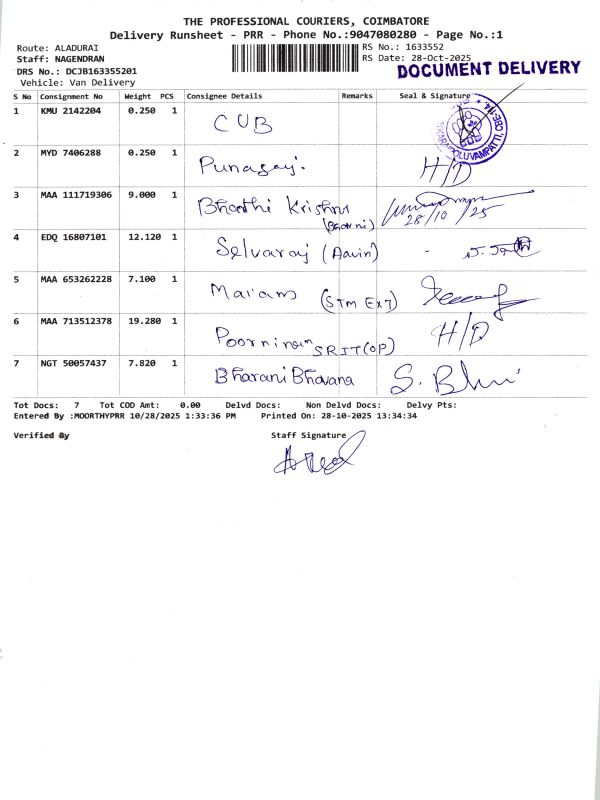 THE PROFESSIONAL COURIERS, COIMBATORE
Delivery Runsheet - PRR - Phone No.:9047080280 - Page No.:1
Route: ALADURAI
RS No.: 1633552
Staff: NAGENDRAN
RS Date: 28-Oct-2025
DRS No.: DCJB163355201
DOCUMENT DELIVERY
Vehicle: Van Delivery
S No Consignment No Weight PCS Consignee Details Remarks Seal & Signature
1 KMU 2142204 0.250 1 CUB
2 MYD 7406288 0.250 1 H/D
3 MAA 111719306 9.000 1 Bharthi Krishna
28/10/25
4 EDQ 16807101 12.120 1 Selvaraj (Aavin) -
5 MAA 653262228 7.100 1 (STM EXT)
6 MAA 713512378 19.280 1 SRIT(OP) H/D
7 NGT 50057437 7.820 1 Bharani Bhavana
Tot Docs: 7 Tot COD Amt: 0.00 Delvd Docs: Non Delvd Docs: Delvy Pts:
Entered By :MOORTHYPRR 10/28/2025 1:33:36 PM Printed On: 28-10-2025 13:34:34
Verified By Staff Signature